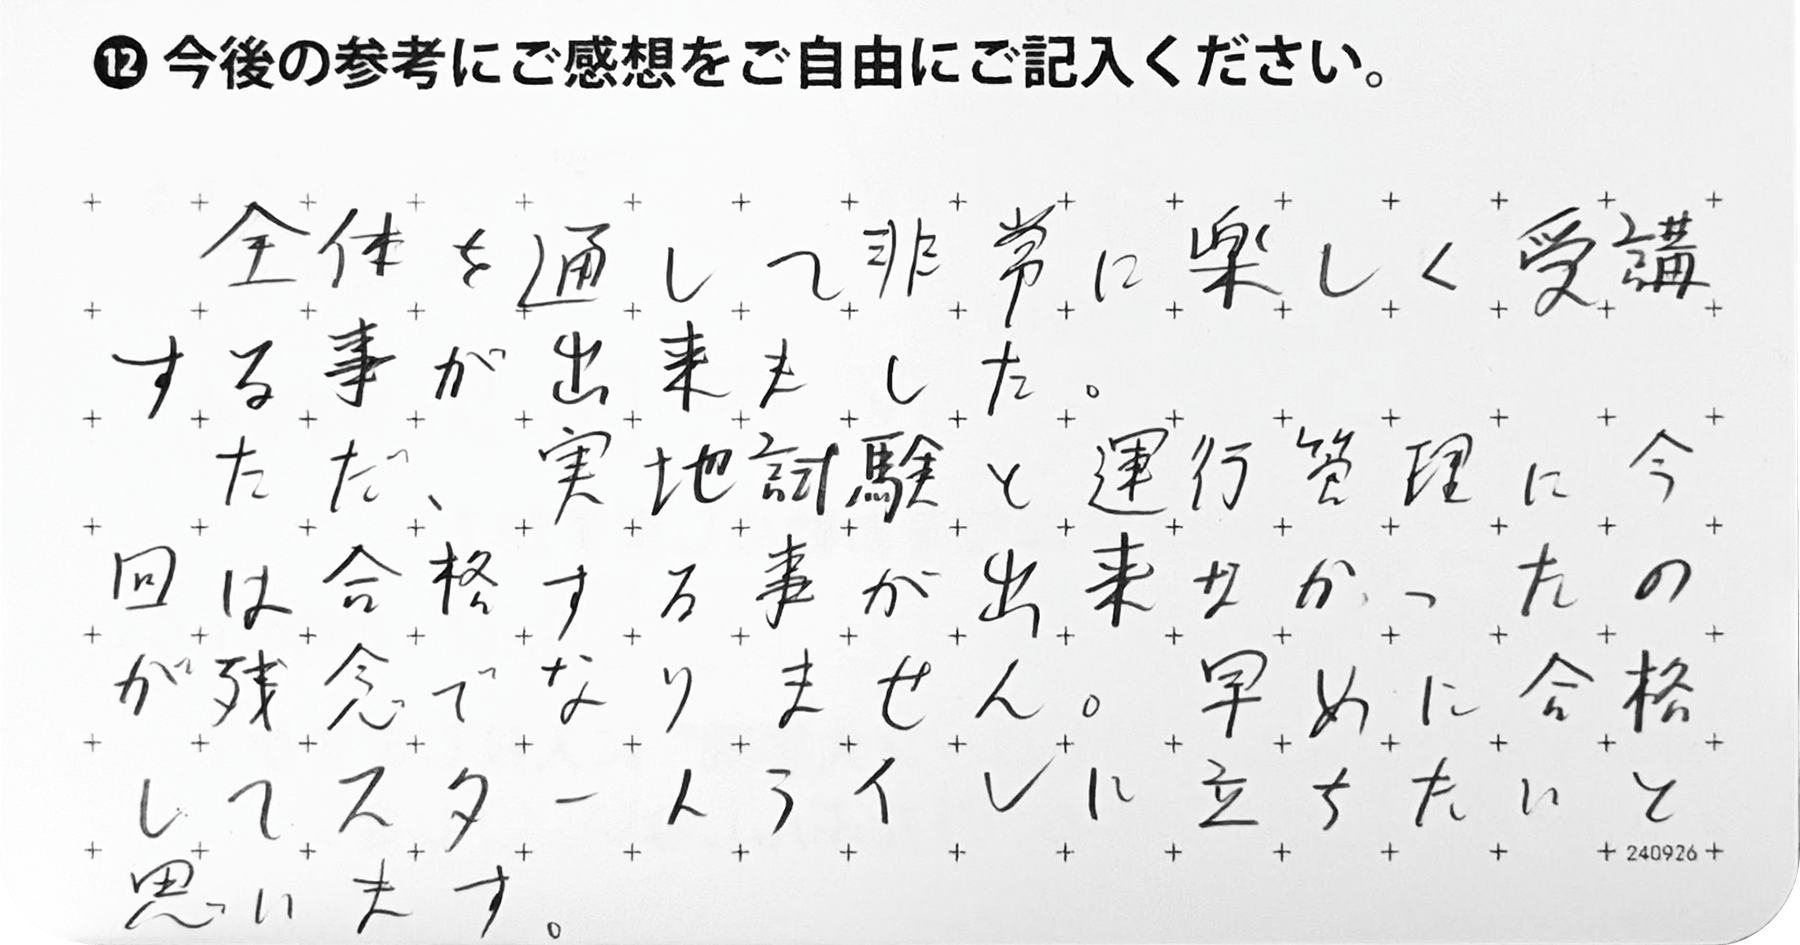 ⓬ 今後の参考にご感想をご自由にご記入ください。
全体を通して非常に楽しく受講
する事が出来ました。
ただ、実地試験と運行管理に今
回は合格する事が出来なかったの
が残念でなりません。早めに合格
してスタートラインに立ちたいと
240926
思います。